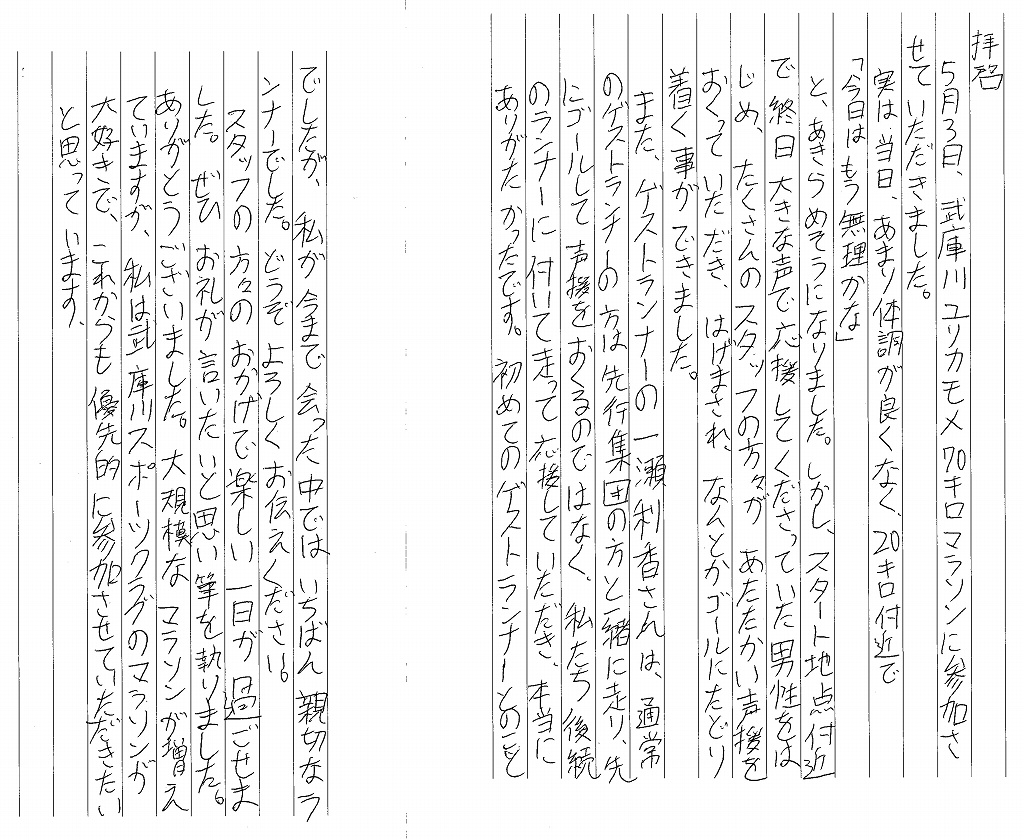 拝啓
5月3日、武庫川ユリカモメ70キロマラソンに参加さ
せていただきました。
実は、当日、あまり体調が良くなく、20キロ付近で
「今日はもう無理かな」
と、あきらめそうになりました。しかし、スタート地点付近
で終日大きな声で応援してくださっていた男性をは
じめ、たくさんのスタッフの方々が、あたたかい声援を
おくっていただき、はげまされ、なんとかゴールにたどり
着く事ができました。
また、ゲストランナーの一瀬利香さんは、通常
のゲストランナーの方は先行集団の方と一緒に走り、先
にゴールして声援をおくるのではなく、私たち後続
のランナーに付いて走って応援していただき、本当に
ありがたかったです。初めてのゲストランナーとのこと
でしたが、私が今まで会った中ではいちばん親切なラ
ンナーでした。どうぞよろしくお伝えください。
スタッフの方々のおかげで楽しい一日が過ごせま
した。ぜひお礼が言いたいと思い筆を執りました。
ありがとうございました。大規模なマラソンが増え
ていますが、私は武庫川スポーツクラブのマラソンが
大好きで、これからも優先的に参加させていただきたい
と思っています。